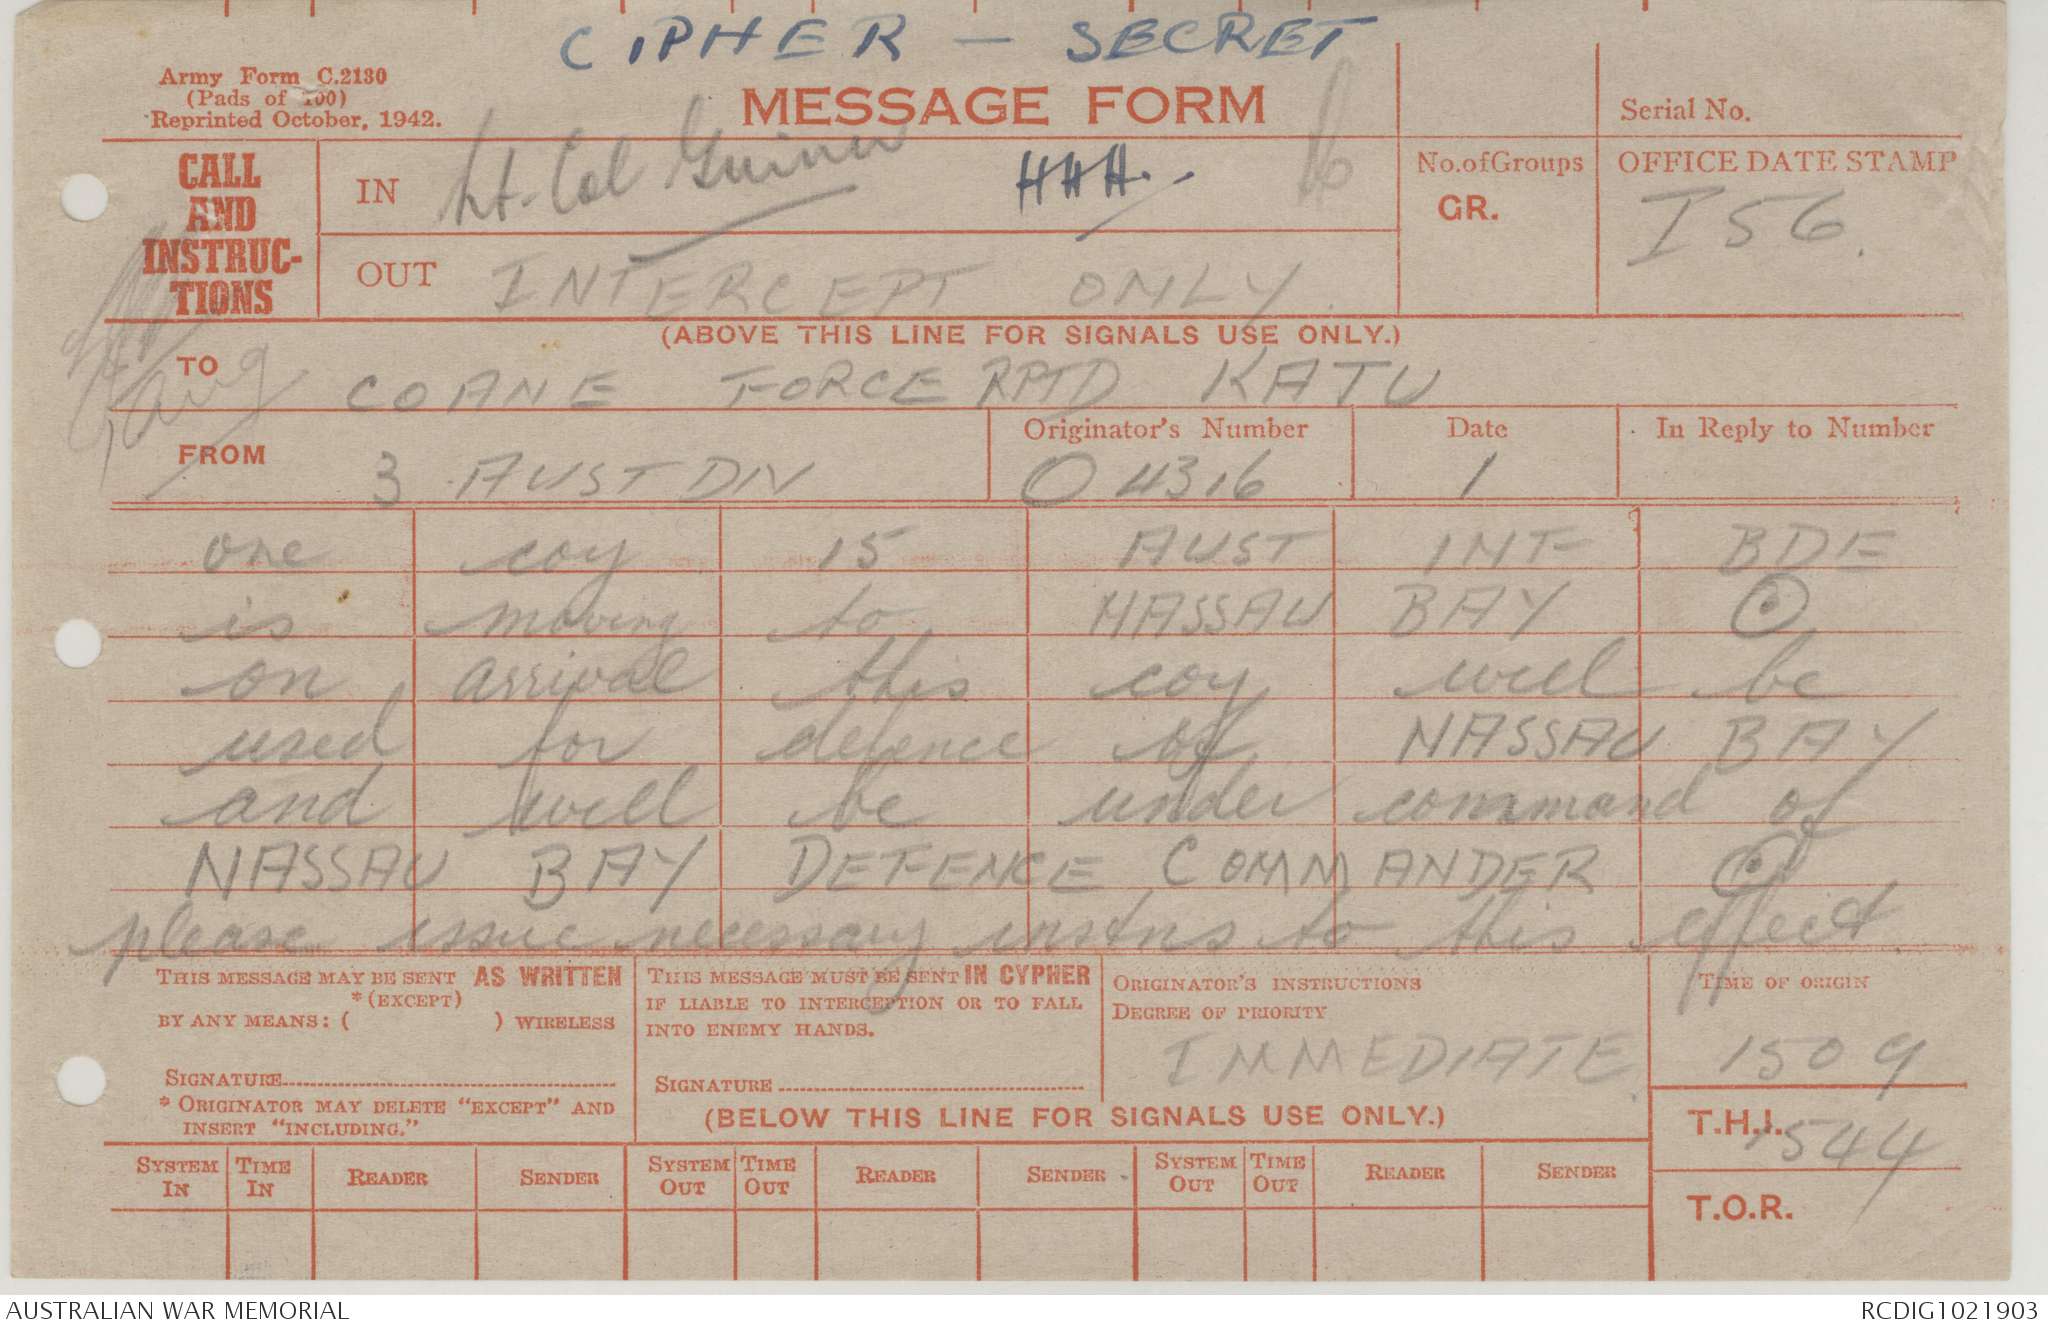 CIPHER — SECRET
Army Form C.2130
(Pads of 100)
Reprinted October, 1942.
MESSAGE FORM
Serial No.
CALL AND INSTRUC-TIONS
IN Lt. Col Guinn HHH.
No. of Groups
GR.
OFFICE DATE STAMP
I 56.
OUT INTERCEPT ONLY.
(ABOVE THIS LINE FOR SIGNALS USE ONLY.)
TO COANE FORCE RPTD KATU
FROM 3 AUST DIV
Originator's Number
O 4316
Date
1
In Reply to Number
one coy 15 AUST INF BDE
is moving to NASSAU BAY ⊙
on arrival this coy will be
used for defence of NASSAU BAY
and will be under command of
NASSAU BAY DEFENCE COMMANDER ⊙
please issue necessary instns to this effect
THIS MESSAGE MAY BE SENT AS WRITTEN
*(EXCEPT)
BY ANY MEANS: ( ) WIRELESS
SIGNATURE
* ORIGINATOR MAY DELETE "EXCEPT" AND
INSERT "INCLUDING."
THIS MESSAGE MUST BE SENT IN CYPHER
IF LIABLE TO INTERCEPTION OR TO FALL
INTO ENEMY HANDS.
SIGNATURE
ORIGINATOR'S INSTRUCTIONS
DEGREE OF PRIORITY
IMMEDIATE
TIME OF ORIGIN
1509
(BELOW THIS LINE FOR SIGNALS USE ONLY.)
T.H.I. 1544
T.O.R.
SYSTEM IN TIME IN READER SENDER SYSTEM OUT TIME OUT READER SENDER SYSTEM OUT TIME OUT READER SENDER
AUSTRALIAN WAR MEMORIAL
RCDIG1021903